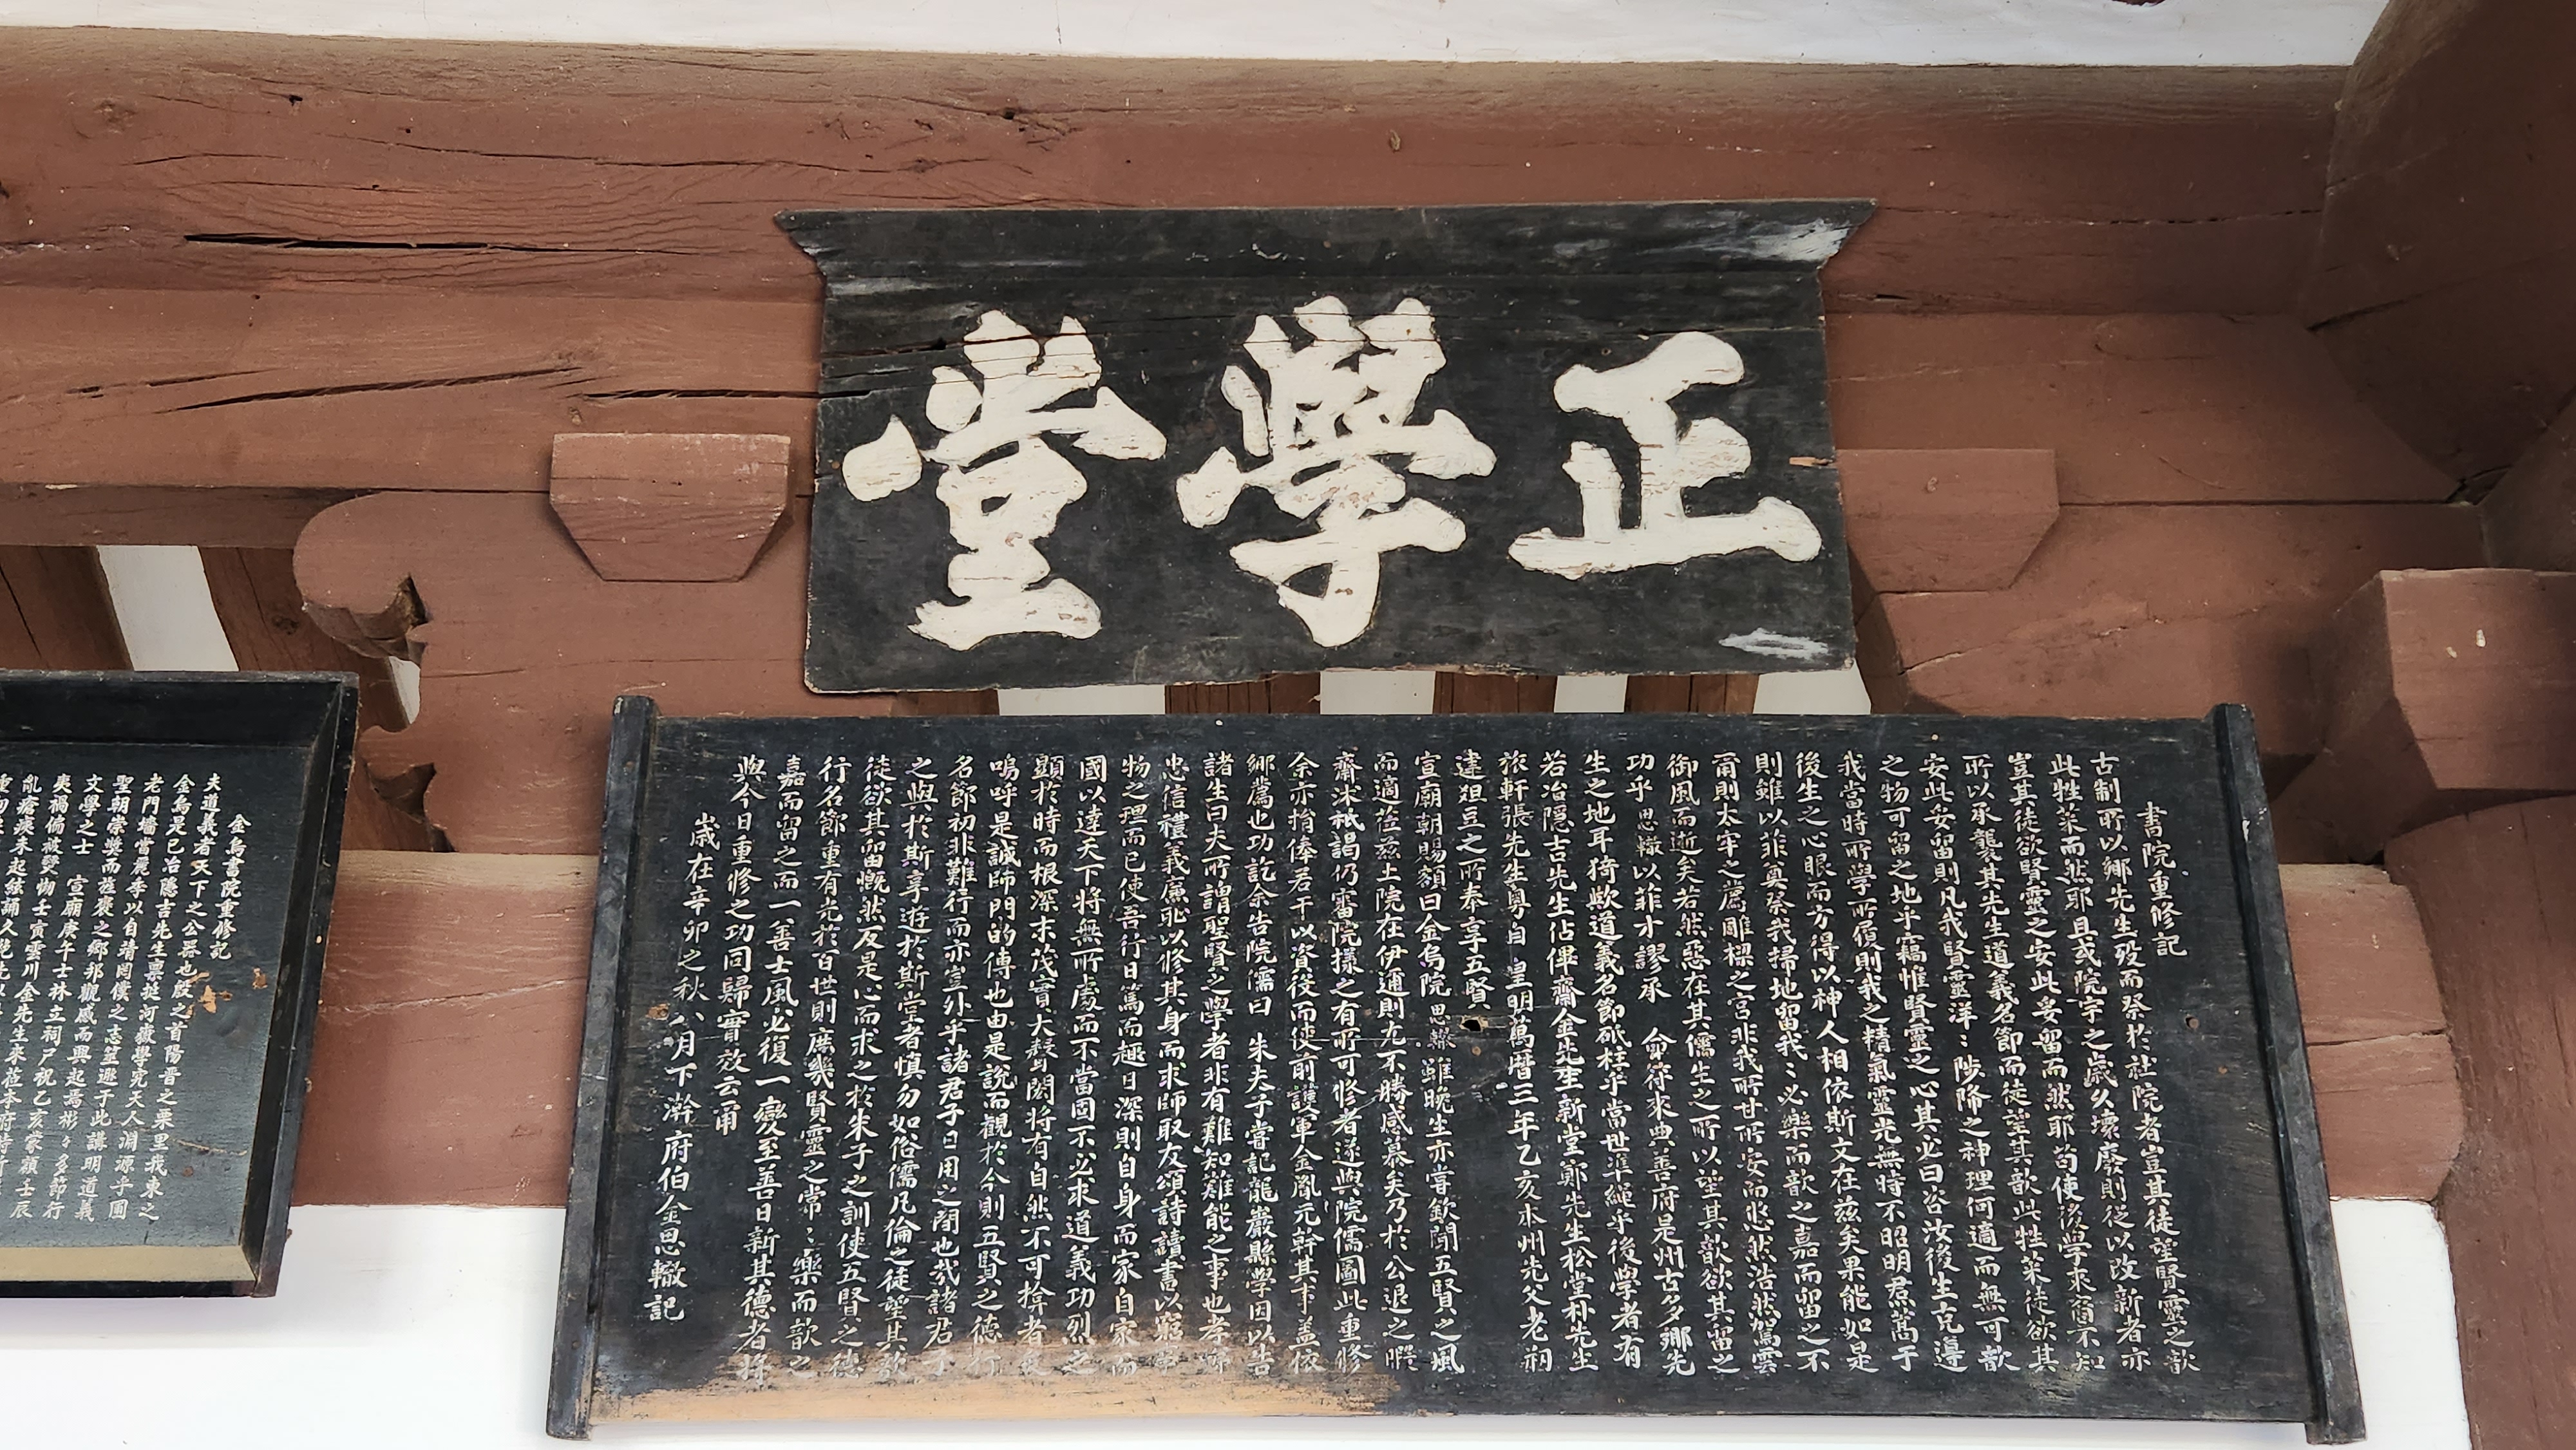 正學堂
書院重修記
古制所以鄉先生歿而祭於社院者豈其徒望賢靈之歆
此牲菜而然耶且或院宇之歲久壞廢則從以改新者亦
豈其徒欲賢靈之安此妥留而然耶苟使後學來裔不知
所以承襲其先生道義名節而徒望其歆此牲菜徒欲其
安此妥留則凡我賢靈洋洋陟降之神理何適而無可歆
之物可留之地乎竊惟賢靈之心其必曰咨汝後生克遵
我當時所學所履則我之精氣靈光無時不昭明焄蒿于
後生之心眼而方得以神人相依斯文在茲矣果能如是
則雖以菲奠祭我掃地留我我必樂而歆之嘉而留之不
爾則太牢之薦雕樑之宮非我所甘所安而悠然浩然駕雲
御風而逝矣若然惡在其儒生之所以望其歆欲其留之
功乎思轍以菲才謬承 命符來典善府是州古多鄉先
生之地耳猗歟道義名節砥柱乎當世準繩乎後學者有
若冶隱吉先生佔俾齋金先生新堂鄭先生松堂朴先生
旅軒張先生粵自 皇明萬曆三年乙亥本州先父老刱
建俎豆之所奉享五賢
宣廟朝賜額曰金烏院思轍雖晩生亦嘗欽聞五賢之風
而適莅茲土院在伊邇則尤不勝感慕矣乃於公退之暇
齋沐祗謁仍審院樣之有所可修者遂與院儒圖此重修
余亦捐俸若干以資役而使前護軍金胤元幹其事盖依
鄉薦也功訖余告院儒曰 朱夫子嘗記龍巖縣學因以告
諸生曰夫所謂聖賢之學者非有難知難能之事也孝悌
忠信禮義廉恥以修其身而求師取友頌詩讀書以窮事
物之理而已使吾行日篤而趣日深則自身而家自家而
國以達天下將無所處而不當固不必求道義功烈之
顯於時而根深末茂實大聲閎將有自然不可揜者矣
嗚呼是誠師門的傳也由是說而觀於今則五賢之德行
名節初非難行而亦豈外乎諸君子日用之間也哉諸君子
之與於斯享遊於斯堂者愼勿如俗儒凡倫之徒望其歆
徒欲其留慨然反是心而求之於朱子之訓使五賢之德
行名節重有光於百世則庶幾賢靈之常常樂而歆之
嘉而留之而一善士風必復一變至善日新其德者將
與今日重修之功同歸實效云爾
歲在辛卯之秋八月下澣府伯金思轍記
金烏書院重修記
夫道義者天下之公器也殷之首陽晋之栗里我東之
金烏是已冶隱吉先生禀挺河嶽學究天人淵源乎圃
老門墻當麗季以自靖罔僕之志筮遯于此講明道義
聖朝崇奬而㫌褒之鄉邦觀感而興起焉彬彬多節行
文學之士 宣廟庚午士林立祠尸祝乙亥蒙額壬辰